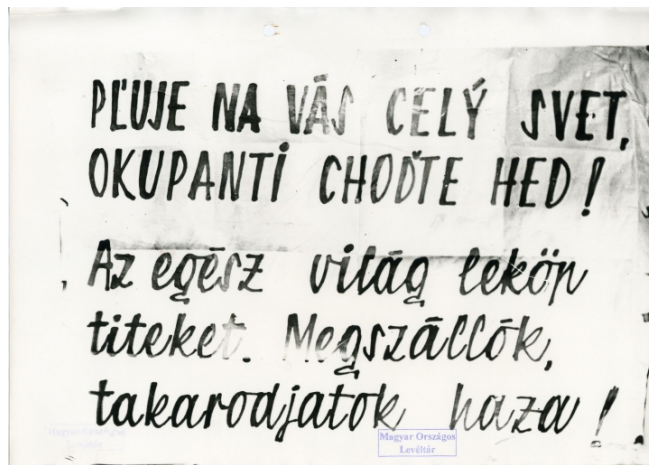 PĽUJE NA VÁS CELÝ SVET,
OKUPANTI CHOĎTE HED!
Az egész világ leköp
titeket. Megszállók,
takarodjatok haza!
Magyar Országos
Levéltár